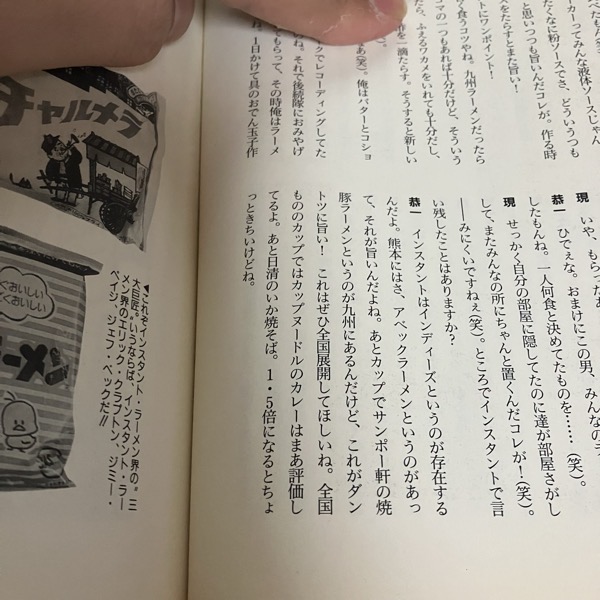 ーカーってみんな液体ソースじゃん
たくなに粉ソースでさ、どういうつも
と思いつつも旨いんだコレが。作る時
をたらすとまた旨い!
トにワンポイント!
く食うコツやね。九州ラーメンだったら
マの一つもあれば十分だけど、そういう
たら、ふえるワカメをいれても十分だし、
一滴たらす。そうすると新しい
あ(笑)。俺はバターとコショ
クでレコーディングしてた
いね。それで後続隊におみやげ
てもらって、その時俺はラーメ
、1日かけて具のおでん玉子作
現 いや、もらったあ
恭一 ひでぇな。おまけにこの男、みんなのラ
したもんね。一人何食と決めてたものを……(笑)。
現 せっかく自分の部屋に隠してたのに達が部屋さがし
して、またみんなの所にちゃんと置くんだコレが!(笑)。
――みにくいですねぇ(笑)。ところでインスタントで言
い残したことはありますか?
恭一 インスタントはインディーズというのが存在する
んだよ。熊本にはさ、アベックラーメンというのがあっ
て、それが旨いんだよね。あとカップでサンポー軒の焼
豚ラーメンというのが九州にあるんだけど、これがダン
トツに旨い! これはぜひ全国展開してほしいね。全国
もののカップではカップヌードルのカレーはまあ評価し
てるよ。あと日清のいか焼そば。1・5倍になるとちょ
っときちいけどね。
チャルメラ
ぐおいしい
くおいしい
ーメン
◀これぞインスタント・ラーメン界の〝三
大巨匠〟。いうならば、インスタント・ラー
メン界のエリック・クラプトン、ジミー・
ペイジ、ジェフ・ベックだ!!